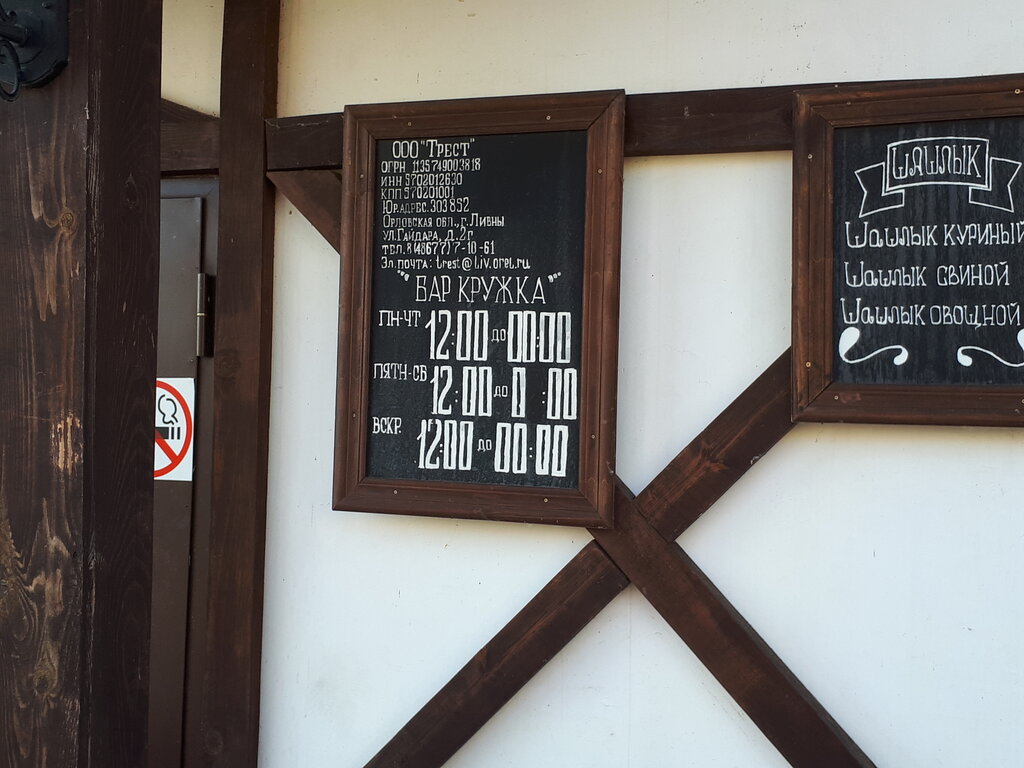 ООО "ТРЕСТ"
ОГРН 1135749003818
ИНН 5702012630
КПП 570201001
ЮР.АДРЕС: 303852
ОРЛОВСКАЯ ОБЛ., Г. ЛИВНЫ
УЛ.ГАЙДАРА, Д. 2Г
ТЕЛ. 8 (48677) 7-10-61
ЭЛ.ПОЧТА: trest@liv.orel.ru
"БАР КРУЖКА"
ПН-ЧТ 12:00 ДО 00:00
ПЯТН-СБ 12:00 ДО 0 :00
ВСКР. 12:00 ДО 00:00
ШАШЛЫК
ШАШЛЫК КУРИНЫЙ
ШАШЛЫК СВИНОЙ
ШАШЛЫК ОВОЩНОЙ